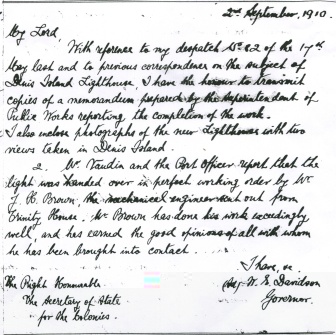 2nd September, 1910
My Lord,
With reference to my despatch No 82 of the 17th
May last and to previous correspondence on the subject of
Denis Island Lighthouse, I have the honour to transmit
copies of a memorandum prepared by the Superintendent of
Public Works reporting the completion of the work.
I also inclose photographs of the new Lighthouse with two
views taken in Denis Island.
2. Mr. Vaudin and the Port Officer report that the
light was handed over in perfect working order by Mr
F. R. Brown, the mechanical engineer sent out from
Trinity House. Mr Brown has done his work exceedingly
well, and has earned the good opinions of all with whom
he has been brought into contact.
I have, &c
The Right Honourable
(sg) W. E. Davidson
The Secretary of State
Governor.
for the Colonies.